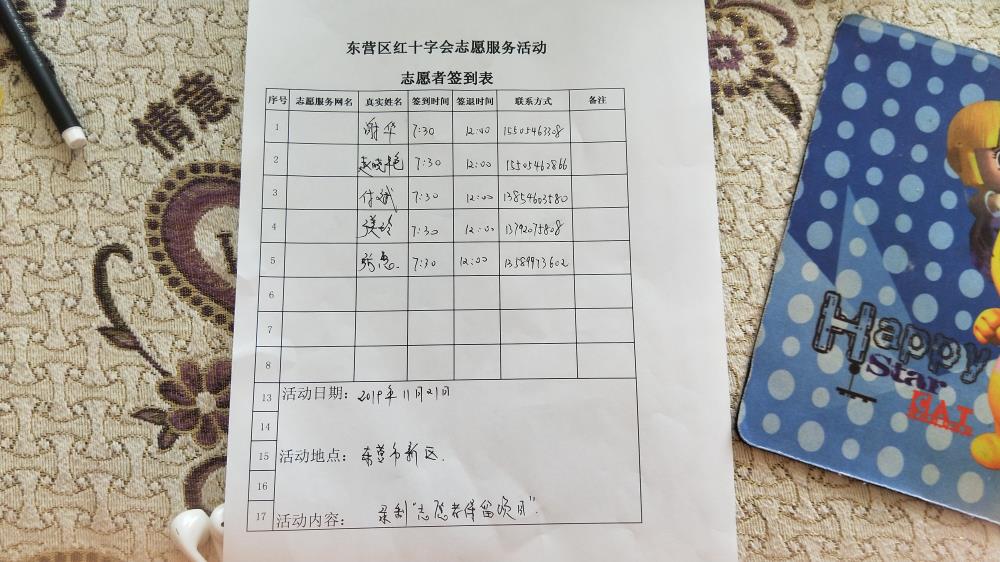 东营区红十字会志愿服务活动
志愿者签到表
序号 志愿服务网名 真实姓名 签到时间 签退时间 联系方式 备注
1 谢华 7:30 12:00 15505463308
2 赵晓艳 7:30 12:00 15505462866
3 付斌 7:30 12:00 13854603580
4 7:30 12:00 13792075808
5 张惠 7:30 12:00 13589973602
6
7
8
13 活动日期: 2019年11月21日
14
15 活动地点: 东营市新区.
16
17 活动内容: 录制“志愿者保留项目”.
情意
Happy
Star